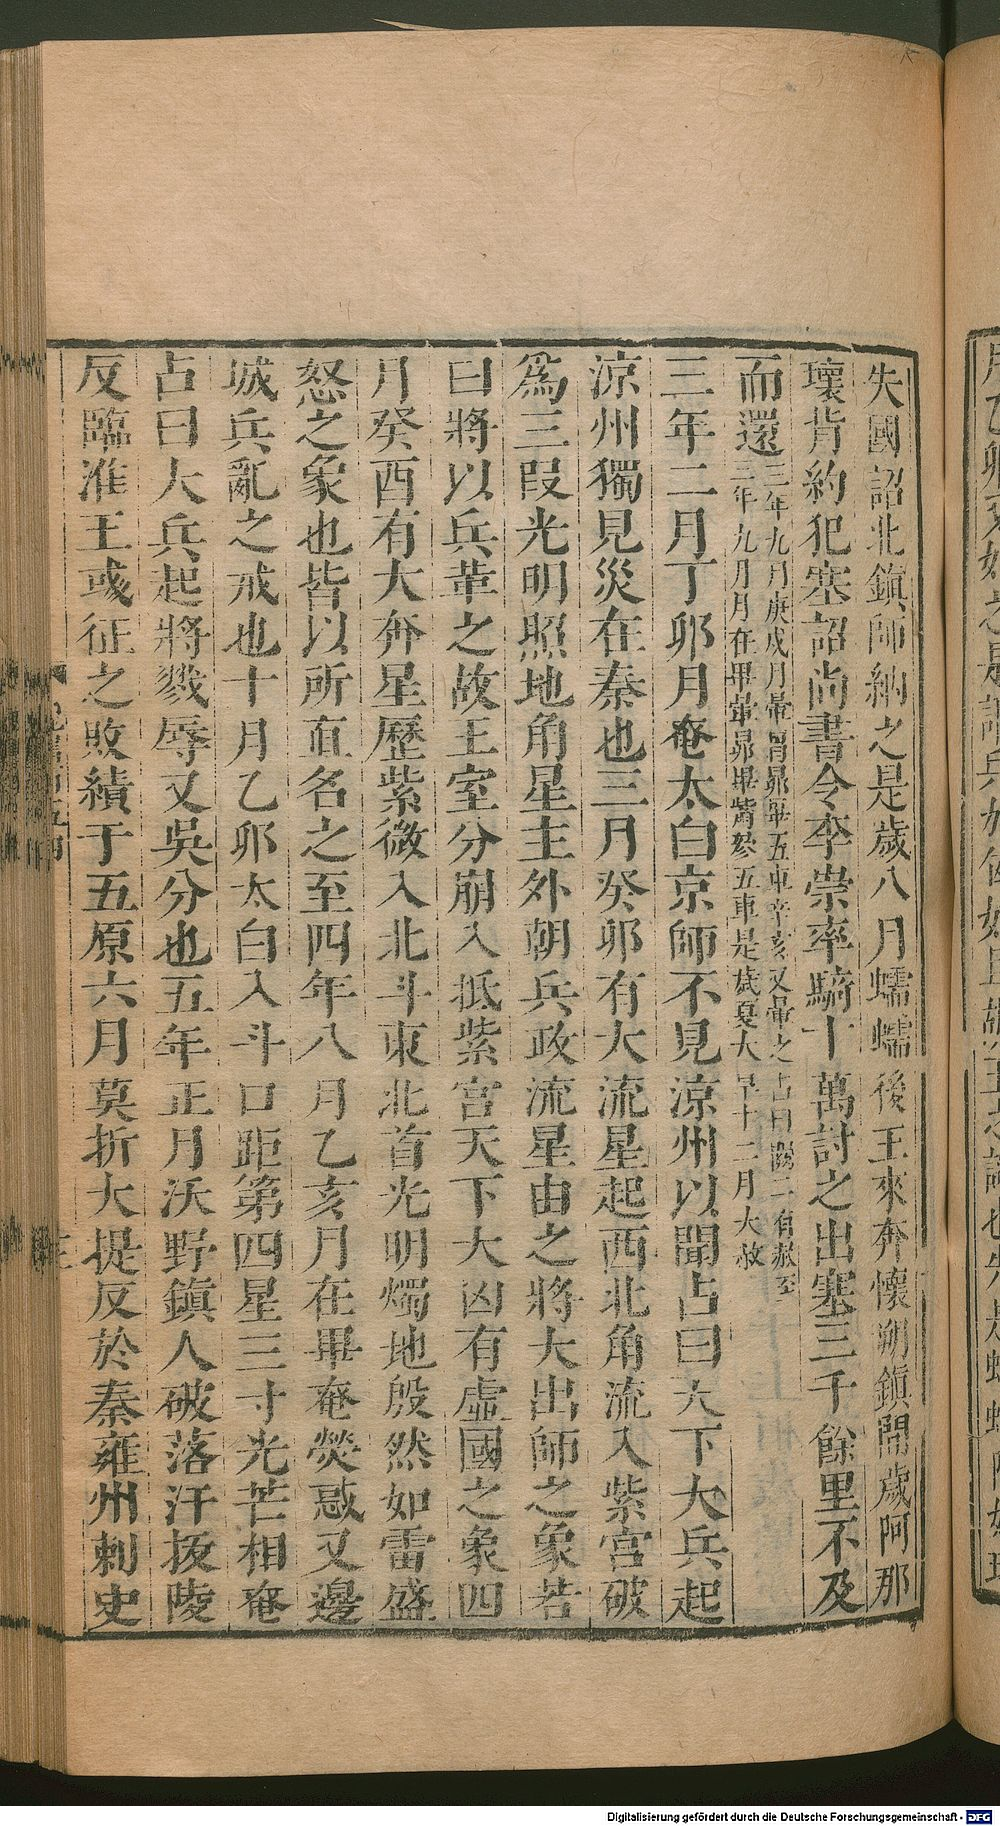 失國詔北鎮師納之是歲八月蠕蠕後王來奔懷朔鎮閒歲阿那
壞背約犯塞詔尚書令李崇率騎十萬討之出塞三千餘里不及
而還
三年九月庚戌月暈胃昴畢五車辛亥又暈之占曰 二有赦至
二年九月月在畢暈昴畢觜參五車是歲夏大旱十二月大赦
三年二月丁卯月奄太白京師不見涼州以聞占曰天下大兵起
涼州獨見災在秦也三月癸卯有大流星起西北角流入紫宮破
為三段光明照地角星主外朝兵政流星由之將大出師之象若
曰將以兵革之故王室分崩入抵紫宮天下大凶有虛國之象四
月癸酉有大奔星歷紫微入北斗東北首光明燭地殷然如雷盛
怒之象也皆以所直名之至四年八月乙亥月在畢奄熒惑又邊
城兵亂之戒也十月乙卯太白入斗口距第四星三寸光芒相奄
占曰大兵起將戮辱又吳分也五年正月沃野鎮人破落汗拔陵
反臨淮王彧征之敗績于五原六月莫折大提反於秦雍州刺史
Digitalisierung gefördert durch die Deutsche Forschungsgemeinschaft - DFG